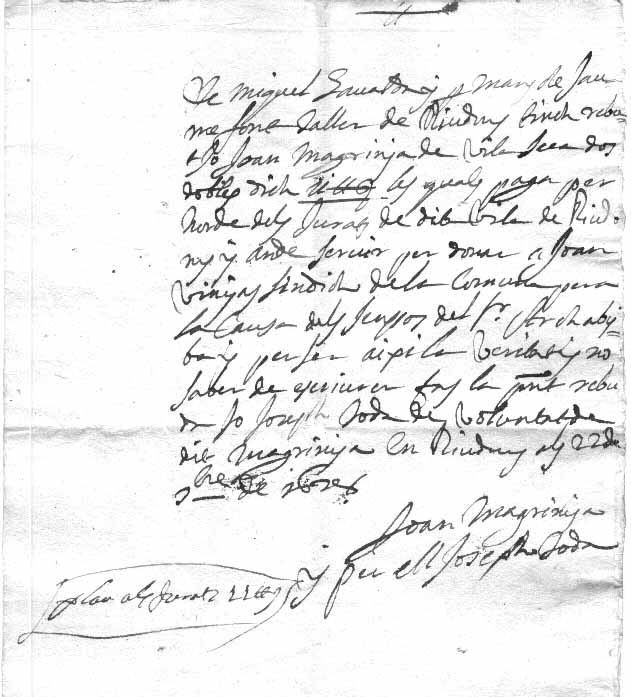 De Miquel Salvador y p mans de Jau
me font taller de Riudoms tinch rebu
t Jo Joan Magrinya de Vila seca dos
dobles dich les quals paga per
horde dels Jurats de dit Vila de Riudo
ms y ande servir per donar a Joan
Vinyas sindich de la Comuna pera
la Causa dels del Sr. Archabis
ba y per ser aixi la veritat y no
saber de escriurer fas la pnt rebu
da Jo Joseph Toda de voluntat de
dit Magrinya en Riudoms als 22 de
bre de 16
Joan Magrinya
y per ell Joseph Toda
als Jurats 11